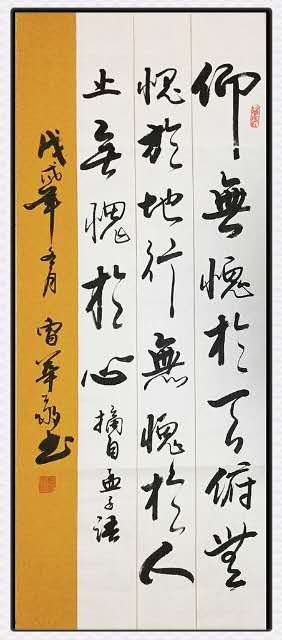 仰無愧於天俯無
愧於地行無愧於人
止無愧於心摘自孟子語
戊戌年
月
書